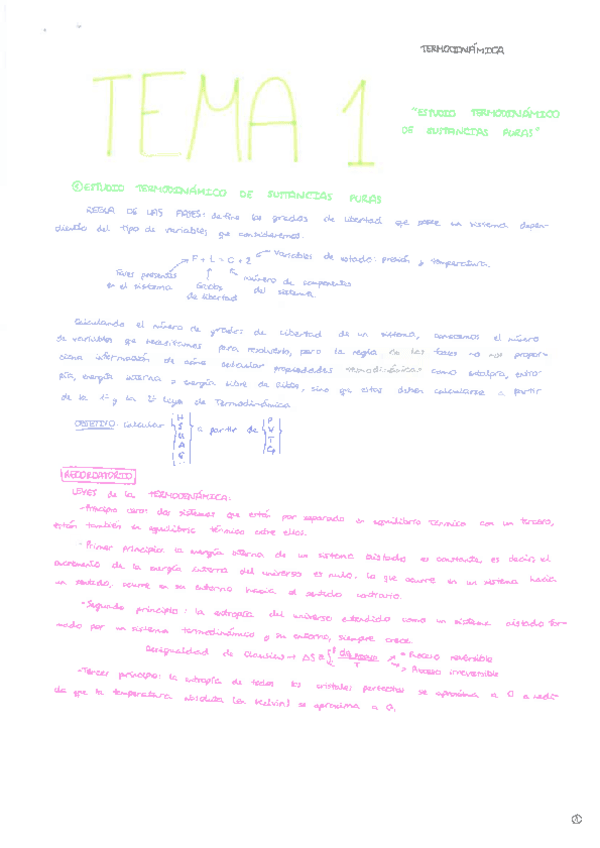 TERMODINÁMICA
TEMA 1
"ESTUDIO TERMODINÁMICO
DE SUSTANCIAS PURAS"
ESTUDIO TERMODINÁMICO DE SUSTANCIAS PURAS
REGLA DE LAS FASES: define los grados de libertad que posee un sistema depen-
diendo del tipo de variables que consideremos.
F + L = C + 2
Variables de estado: presión y temperatura.
Fases presentes
en el sistema
Grados
de libertad
número de componentes
del sistema
Calculando el número de grados de libertad de un sistema, conocemos el número
de variables que necesitamos para resolverlo, pero la regla de las fases no nos propor-
ciona información de cómo calcular propiedades termodinámicas como entalpía, entro
pía, energía interna o energía libre de Gibbs, sino que estas deben calcularse a partir
de la 1ª y la 2ª leyes de Termodinámica
OBJETIVO: Calcular H S U A G ... a partir de P V T Cp
RECORDATORIO
LEYES de la TERMODINÁMICA:
- Principio cero: dos sistemas que están por separado en equilibrio térmico con un tercero,
están también en equilibrio térmico entre ellos.
- Primer principio: la energía interna de un sistema aislado es constante, es decir, el
incremento de la energía interna del universo es nulo. Lo que ocurre en un sistema hacia
un sentido, ocurre en su entorno hacia el sentido contrario.
- Segundo principio: la entropía del universo entendido como un sistema aislado for-
mado por un sistema termodinámico y su entorno, siempre crece
Desigualdad de Clausius → ΔS
T
= Proceso reversible
> Proceso irreversible
- Tercer principio: la entropía de todos los cristales perfectos se aproxima a 0 a medi-
da que la temperatura absoluta (en Kelvin) se aproxima a 0.